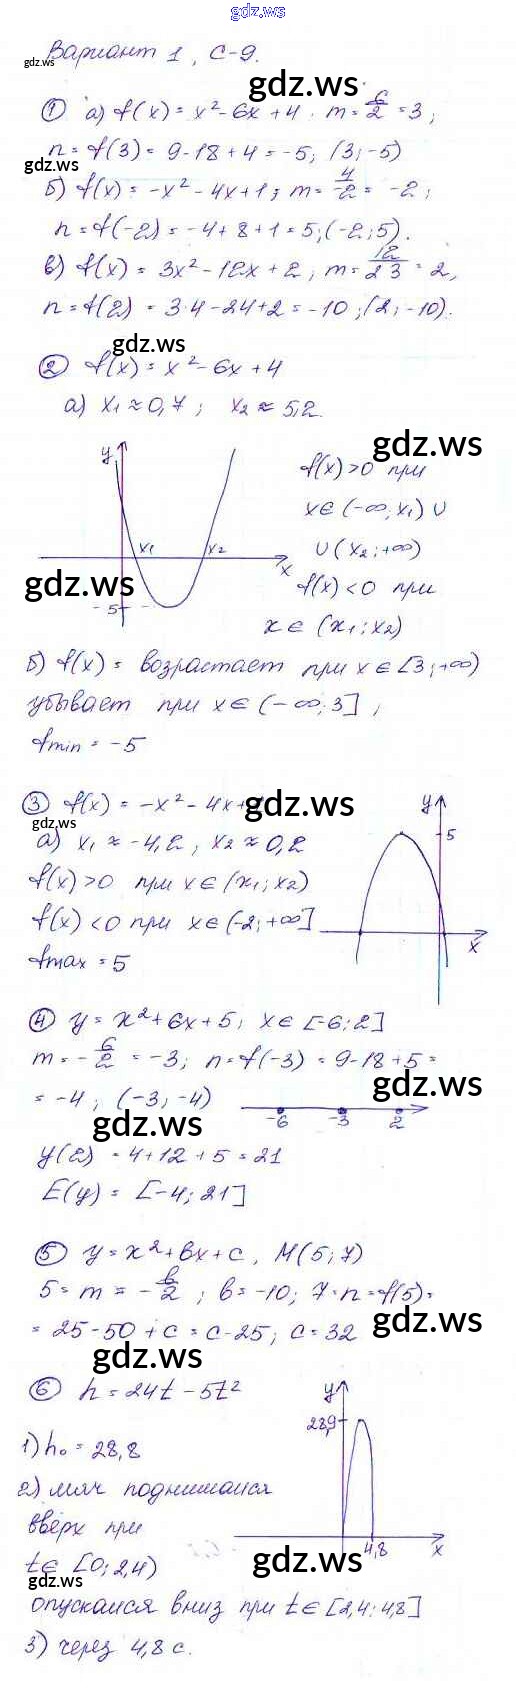 gdz.ws
Вариант 1, С-9.
gdz.ws
① а) f(x) = x² - 6x + 4. m = 6/2 = 3;
n = f(3) = 9 - 18 + 4 = -5; (3; -5)
gdz.ws
б) f(x) = -x² - 4x + 1; m = 4/-2 = -2;
n = f(-2) = -4 + 8 + 1 = 5; (-2; 5).
в) f(x) = 3x² - 12x + 2; m = 12/2·3 = 2,
n = f(2) = 3·4 - 24 + 2 = -10; (2; -10).
gdz.ws
② f(x) = x² - 6x + 4
а) x₁ ≈ 0,7; x₂ ≈ 5,2.
gdz.ws
y
f(x) > 0 при
x ∈ (-∞; x₁) ∪
∪ (x₂; +∞)
x₁ x₂
x
gdz.ws
f(x) < 0 при
-5
x ∈ (x₁; x₂)
б) f(x) = возрастает при x ∈ [3; +∞)
убывает при x ∈ (-∞; 3];
fmin = -5
③ f(x) = -x² - 4x +
gdz.ws
y
gdz.ws
а) x₁ ≈ -4,2, x₂ ≈ 0,2
5
f(x) > 0 при x ∈ (x₁; x₂)
f(x) < 0 при x ∈ (-2; +∞]
x
fmax = 5
④ y = x² + 6x + 5; x ∈ [-6; 2]
m = -6/2 = -3; n = f(-3) = 9 - 18 + 5 =
gdz.ws
= -4; (-3; -4)
-6 -3 2
gdz.ws
y(2) = 4 + 12 + 5 = 21
E(y) = [-4; 21]
⑤ y = x² + bx + c, M(5; 7)
5 = m = -b/2; b = -10; 7 = n = f(5) =
= 25 - 50 + c = c - 25; c = 32
gdz.ws
gdz.ws
⑥ h = 24t - 5t²
y
28,9
1) h₀ = 28,8
2) мяч поднимался
вверх при
4,8 x
t ∈ [0; 2,4)
gdz.ws
gdz.ws
опускался вниз при t ∈ [2,4; 4,8]
3) через 4,8 с.
gdz.ws